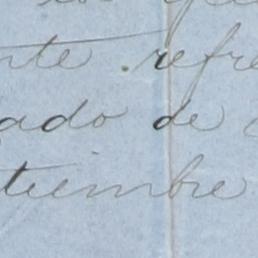 nte refre
ado de
tiembre